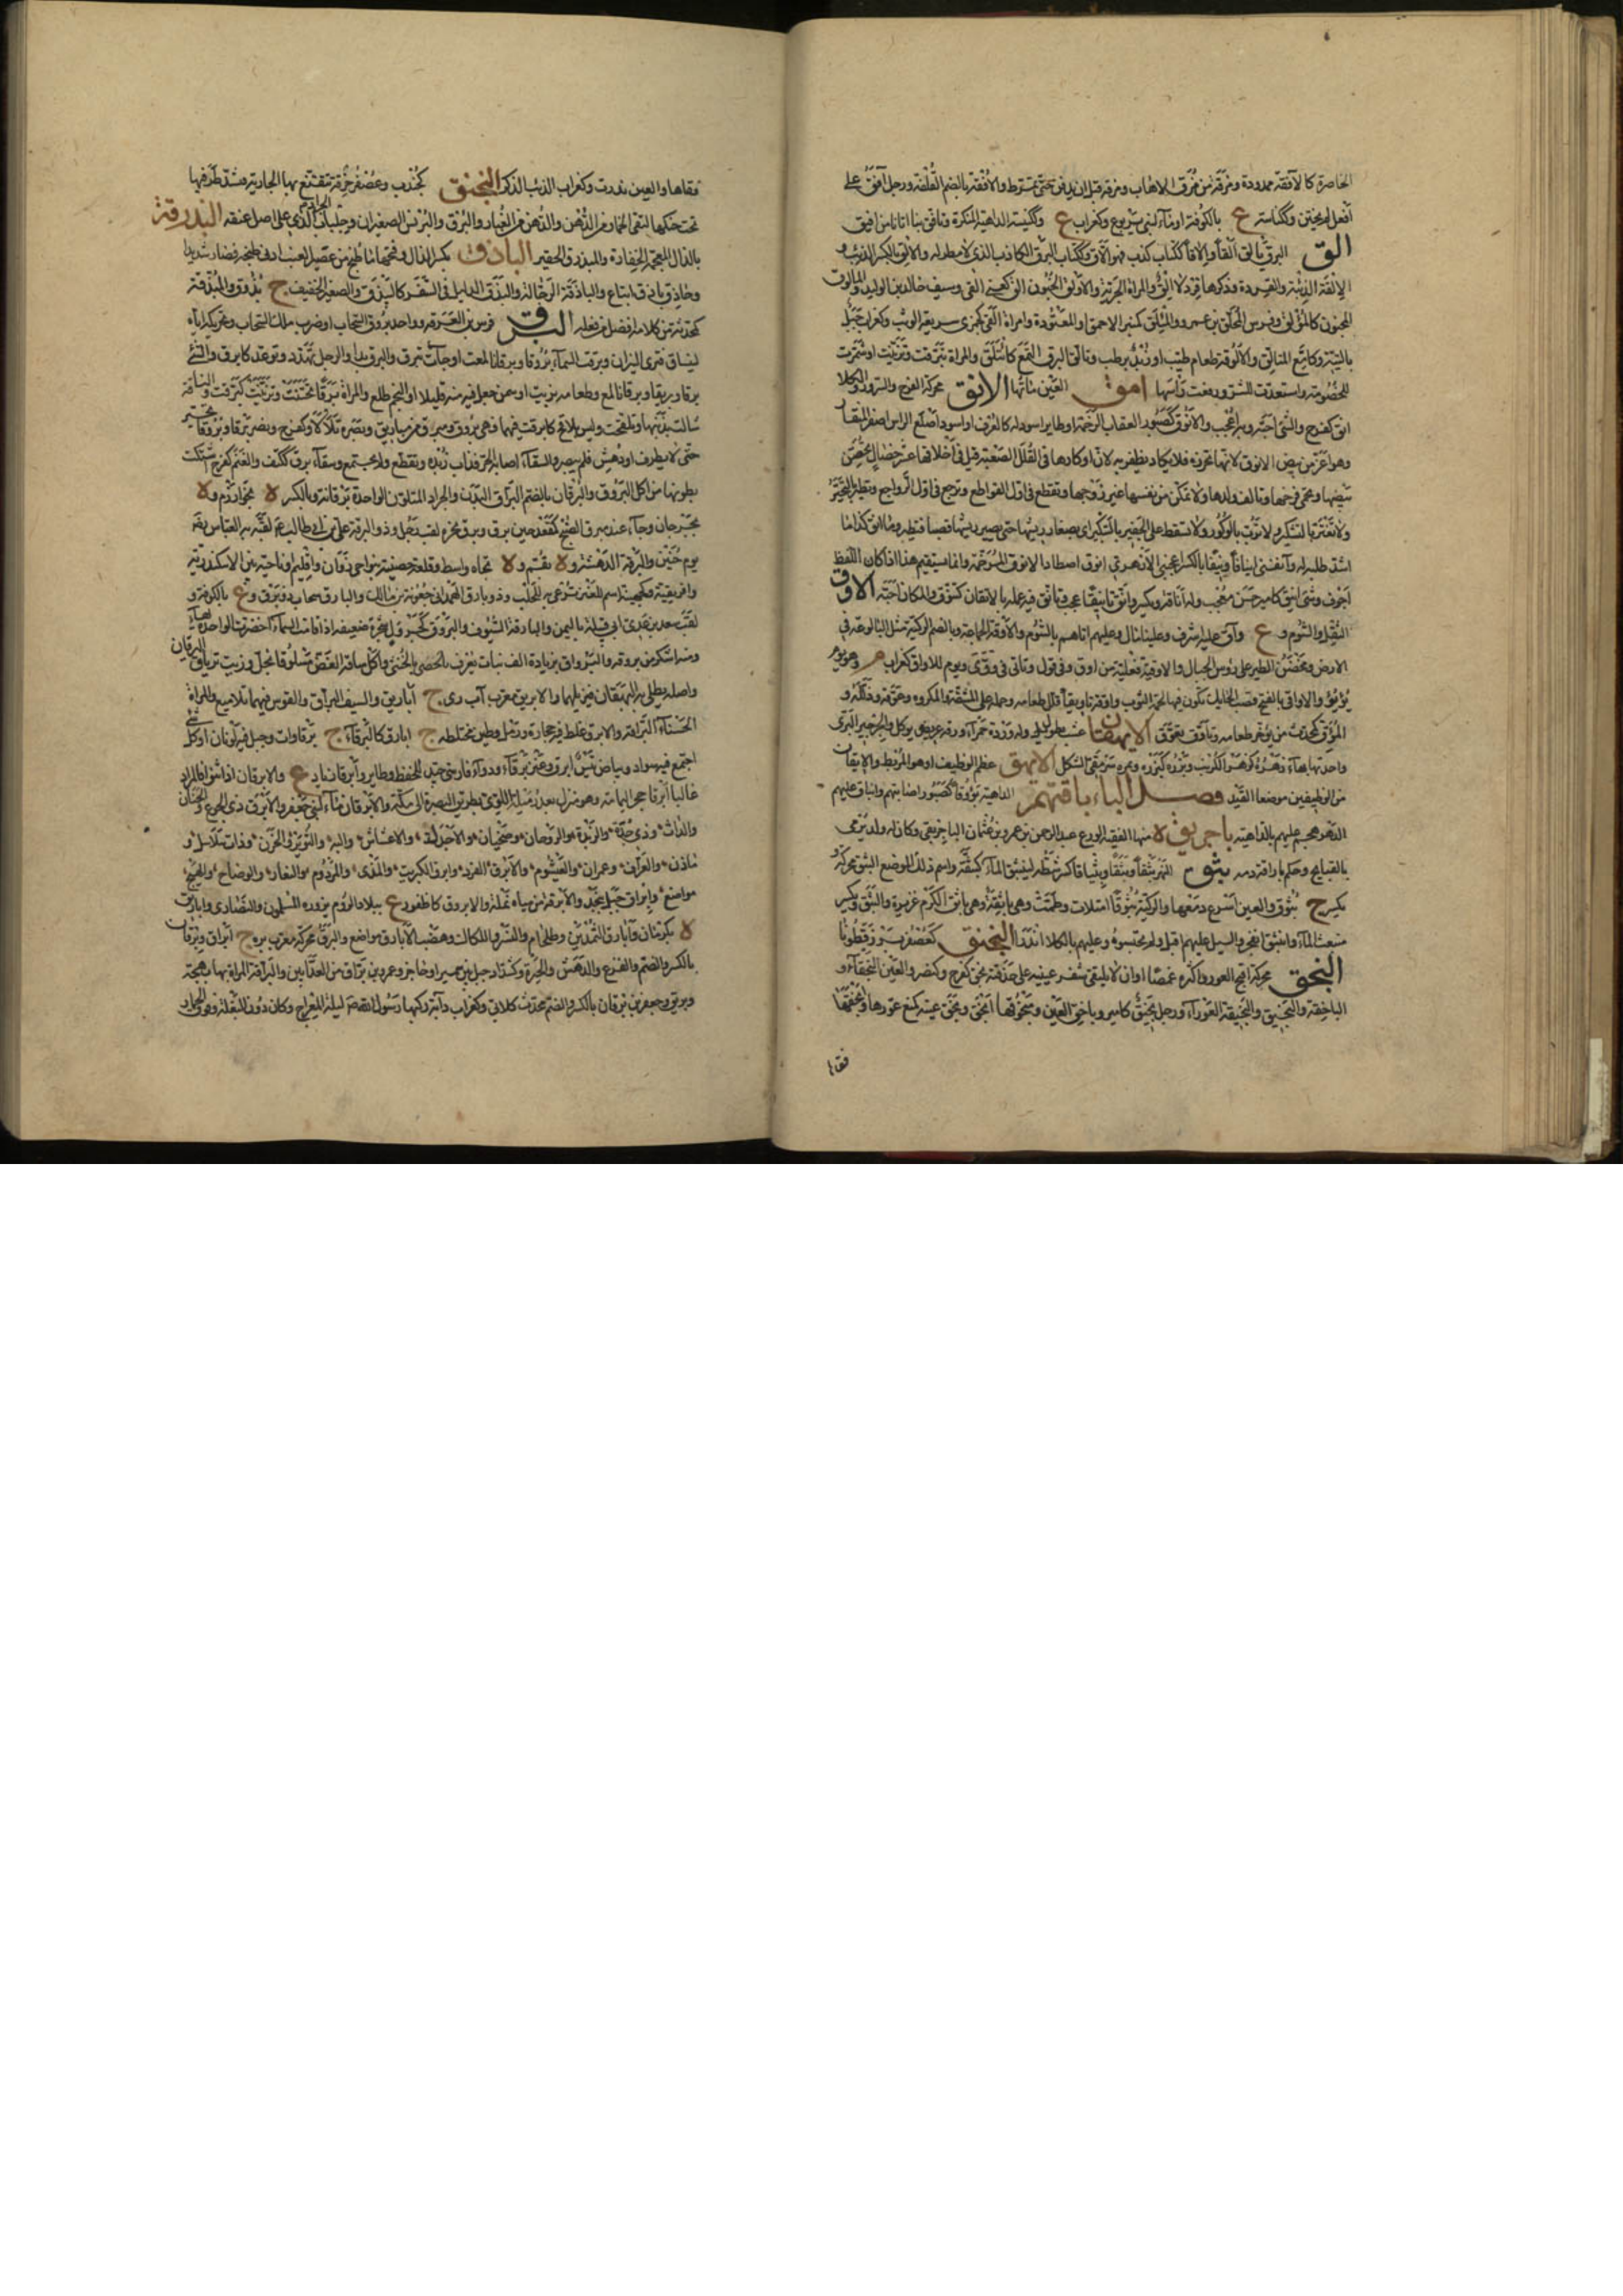 الخاصرة كالآفقة ممدودة ومرقة من مرق الاهاب ومرقه قبل ان يدفن حتى تمرط والأفقة بالضم القلفة ورجل آفق على
أفعل لم يختن وككناسة ع بالكوفة او ماء لبنى يربوع وكغراب ع وكفينة الداهية المنكرة وتافق بنا اتانا من افق
الق البرق يالق ألقا وإلاقا ككتاب كذب فهو ألاق وككتاب البرق الكاذب الذى لا مطر له والالق بالكسر الذئب و
الإلقة الذئبة والقردة وذكرها قرد لا إلق والمراة الجريئة والأولق الجنون الق كعنى القا وسيف خالد بن الوليد والمالوق
المجنون كالمؤلق وفرس المحلق بن عمرو والمئلق كمنبر الاحمق او المعتوه وامراة القى كجمزى سريعة الوثب وكغراب جبل
بالتيه وكامع المتالق والألوقة طعام طيب او زبد برطب وتالق البرق التمع كائتلق والمراة تبرقت وتزينت او شمرت
للخصومة واستعدت للشر ورفعت راسها امق العين ماقها الانق محركة الفرح والسرور والكلا
انق كفرح والشئ احبه وبه اعجب والانوق كصبور العقاب والرخمة او طاير اسود له كالعرف او اسود اصلع الراس اصفر المنقار
وهو اعز من بيض الانوق لانها تحرزه فلا يكاد يظفر به لان اوكارها فى القلل الصعبة قيل فى أخلاقها عشر خصال تحضن
بيضها وتحمى فرخها وتالف ولدها ولا تمكن من نفسها غير زوجها وتقطع فى اول القواطع وترجع فى اول الرواجع ولا تطير فى التحسير
ولا تغتر بالشكير ولا ترب بالوكور ولا تسقط على الجفير يا لشكير اى بصغار ريشها حتى يصير ريشها قصبا فتطير وما آنقه فى كذا ما
اشد طلبه له وآنقنى ايناقا ونيقا بالكسر اعجبنى
أجوف وشئ انيق كامير حسن معجب وله أناقة ويكسر وانق تانيقا عجب وتانق فيه عمله بالاتقان كتنوق والمكان احبه الاوق
الثقل والشوم و ع وآق عليه اشرف وعلينا مال وعليهم اتاهم بالشوم والاوقة الجماعة وبالضم الركية مثل البالوعة فى
الارض ومحضن الطير على رؤس الجبال والاوقية فعلية من اوق وفى قول وتاتى فى وقى ويوم الاواق كغراب م وهو يوم
يؤيؤ والاواقى بالفتح قصب الحائك تكون فيها لحمة الثوب واوقه تاويقا قلل طعامه وحمله على المشقة والمكروه وعوقه وذلله و
المؤوق كمحدث من يؤخر طعامه وتاوق تعوق الايهقان عشب يطول وله وردة حمراء وورقه عريض ويوكل او الجرجير البرى
واحدته بهاء الايهق عظم الوظيف او هو المريط والايقان
من الوظيفين موضعا القيد فصل الباء باقتهم الداهية بؤوقا كصبور اصابتهم وانباق عليهم
الدهر هجم عليهم بالداهية باجريق ة منها الفقيه الورع عبد الرحمن بن عمرو بن عثمان الباجربقى وكان له ولد يرمى
بالقبايح وحكم باراقة دمه بثق النهر بثقا وبثقا وتبثاقا كسر شطه لينبثق الماء كبثقه واسم ذلك الموضع البثق محركة و
يكسر ج بثوق والعين اسرع دمعها والركية بثوقا امتلات وطمت وهى باثقة وهو باثق الكرم غزيره والبثق ويكسر
منبعث الماء وانبثق انفجر والسيل عليهم اقبل ولم يحتسبوه وعليهم بالكلام اندرا البخدق كعصفر بزر قطونا
البخق محركة اقبح العور واكثره غمصا او ان لا يلتقى شفر عينيه على حدقته بخق كفرح وكنصر والعين البخقاء و
الباخقة والبخيق والبخيقة العوراء ورجل بخيق كامير وباخق العين ومبخوقها ابخق وبخق عينه كمنع عورها وابخقها
فقاها
فقاها والعين ندرت وكغراب الذئب الذكر البخنق كجندب وعصفر خرقة تتقنع بها الجارية فتشد طرفيها
تحت حنكها لتقى الخمار من الدهن والدهن من الغبار والبرقع والبرنس الصغيران وجلباب الجراد الذى على اصل عنقه البذرقة
بالذال المعجمة الخفارة والمبذرق الحفير الباذق بكسر الذال وفتحها ما طبخ من عصير العنب ادنى طبخة فصار شديدا
وحاذق باذق اتباع والباذقة الرجالة والبذق الدليل فى السفر كالبيذق والصغير الخفيف ج بذوق والمبذقة
كمحدثة من كلامه افضل من فعله البرق فرس ابن العرقة وواحد بروق السحاب او ضرب ملك السحاب وتحريكه اياه
لينساق فترى النيران وبرقت السماء بروقا وبرقانا لمعت او جاءت ببرق والبرق بدا والرجل تهدد وتوعد كابرق والشئ
برقا وبريقا وبرقانا لمع وطعامه بزيت او سمن جعل فيه منه قليلا والنجم طلع والمراة برقا تحسنت وتزينت كبرقت والناقة
شالت بذنبها وتلقحت وليس بلاقح كابرقت فيهما فهى بروق ومبرق من مباريق وبصره تلالا وكفرح ونصر برقا وبروقا تحير
حتى لا يطرف او دهش فلم يبصر والسقاء اصابه الحر فذاب زبده وتقطع ولم يجتمع وسقاء برق ككتف والغنم كفرح اشتكت
بطونها من اكل البروق والبرقان بالضم البراق البدن والجراد المتلون الواحدة برقانة وبالكسر ة بخوارزم وة
بجرجان وجاء عند مبرق الصبح كمقعد حين برق وبرق نحره لقب رجل وذو البرقة على بن ابى طالب لقبه به العباس رضى
يوم حنين والبرقة الدهشة وة بقم وة تجاه واسط وقلعة حصينة بنواحى دوان واقليم او ناحية بين الاسكندرية
وافريقية وكجهينة اسم للعنز تدعى به للحلب وذو بارق الهمدانى جعونة بن مالك والبارق سحاب ذو برق و ع بالكوفة و
لقب سعد بن عدى ابى قبيلة باليمن والبارقة السيوف والبروق كجرول شجيرة ضعيفة اذا غامت السماء اخضرت الواحدة بهاء
ومنه اشكر من بروقة والبرواق بزيادة الف نبات يعرف بالخنثى واكل ساقه الغض مسلوقا بخل وزيت ترياق اليرقان
واصله يطلى به البهقان فيزيلهما والابريق معرب آب رى ج اباريق والسيف البراق والقوس فيها تلاميع والمراة
الحسناء البراقة والابرق غلظ فيه حجارة ورمل وطين مختلطة ج ابارق كالبرقاء ج برقاوات وجبل فيه لونان او كل شئ
اجتمع فيه سواد وبياض تيس ابرق وعنز برقاء ودواء فارسى جيد للحفظ وطاير وابرقا زياد ع والابرقان اذا ثنوا فالمراد
غالبا ابرقا حجر اليمامة وهو منزل بعد رميلة اللوى بطريق البصرة الى مكة والابرقان ماء لبنى جعفر والابرق ذى الجموع والحنان
والدآث وذى جدد والربذة والروحان وضحيان والاجدل والاعشاش والية والثوير والحزن وذات سلاسل و
مازن والعزاف وعمران والعيشوم والابرق الفرد وابرق الكبريت والمدى والمردوم والنعار والوضاح والهيج
مواضع وابراق جبل بنجد والابرقة من مياه نملة والابروق كاظفور ع ببلاد الروم يزوره المسلمون والنصارى وابارق
ة بكرمان وأبارق الثمدين وطلخام والنسر واللكاك وهضب الابارق مواضع والبرق محركة الحمل معرب بره ج ابراق وبرقان
بالكسر والضم والفزع والدهش والحيرة وكشداد جبل بين سميراء وحاجر وعمرو بن براق من العدائين والبراقة المراة لها بهجة
وبريق وجعفر بن برقان بالكسر والضم محدث كلابى وكغراب دابة ركبها رسول الله صلعم ليلة المعراج وكان دون البغلة وفوق الحمار